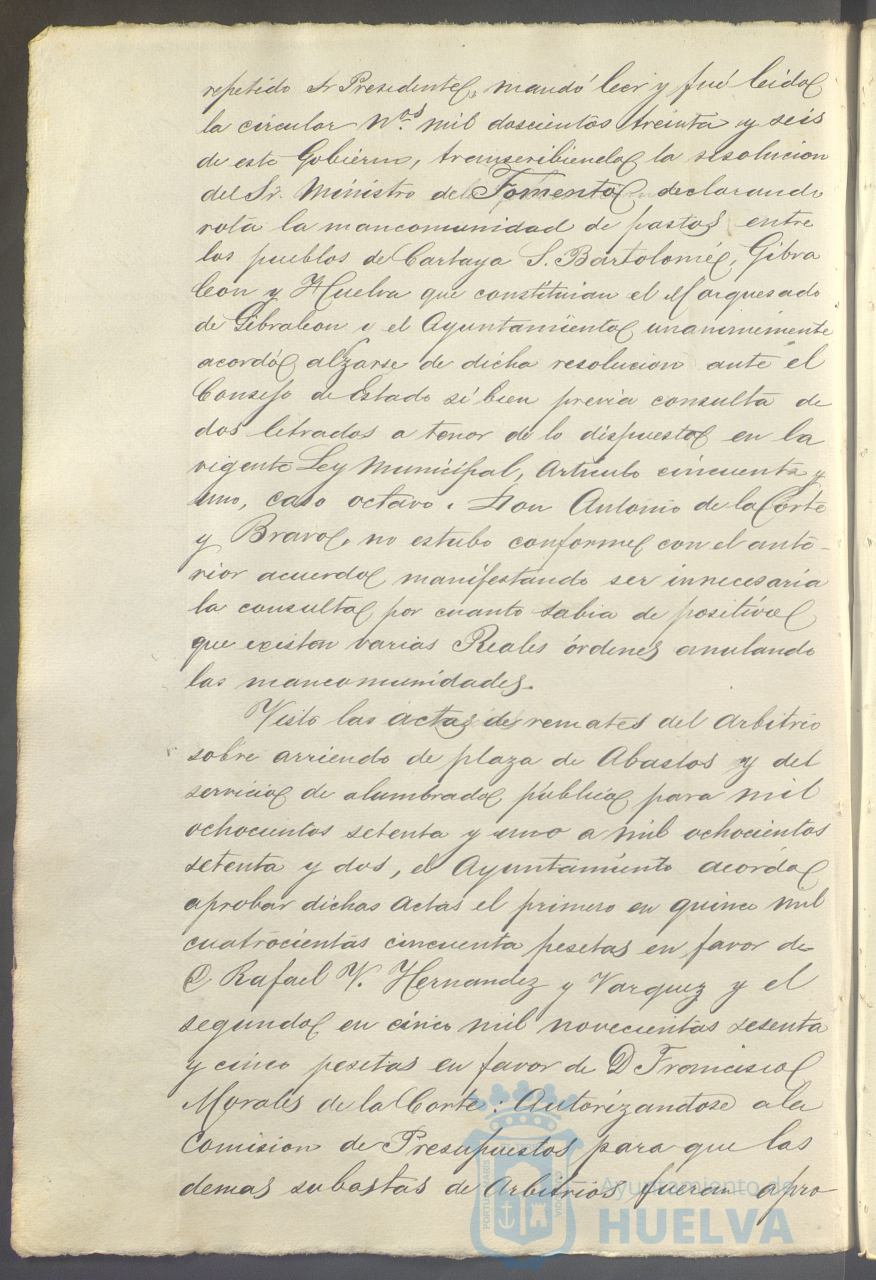 repetido Sr Presidente, mandó leer y fué leido
la circular Nos. mil doscientos treinta y seis
de este Gobierno, transcribiendo la resolucion
del Sr. Ministro de Fomento declarando
rota la mancomunidad de pastos entre
los pueblos de Cartaya S. Bartolomé, Gibra
leon y Huelva que constituian el Marquesado
de Gibraleon y el Ayuntamiento unanimemente
acordó alzarse de dicha resolucion ante el
Consejo de Estado si bien previa consulta de
dos letrados a tenor de lo dispuesto en la
vigente Ley Municipal, Articulo cincuenta y
uno, caso octavo. Don Antonio de la Corte
y Bravo, no estubo conforme con el ante-
rior acuerdo manifestando ser innecesaria
la consulta por cuanto sabia de positivo
que existen varias Reales órdenes anulando
las mancomunidades.
Visto las actas de remates del arbitrio
sobre arriendo de plaza de Abastos y del
servicio de alumbrado público para mil
ochocientos setenta y uno a mil ochocientos
setenta y dos, el Ayuntamiento acordó
aprobar dichas actas el primero en quince mil
cuatrocientas cincuenta pesetas en favor de
D Rafael V. Hernandez y Vazquez y el
segundo en cinco mil novecientas sesenta
y cinco pesetas en favor de D Francisco
Morales de la Corte: Autorizandose a la
Comision de Presupuestos para que las
demas subastas de Arbitrios fueran apro
Ayuntamiento de
HUELVA